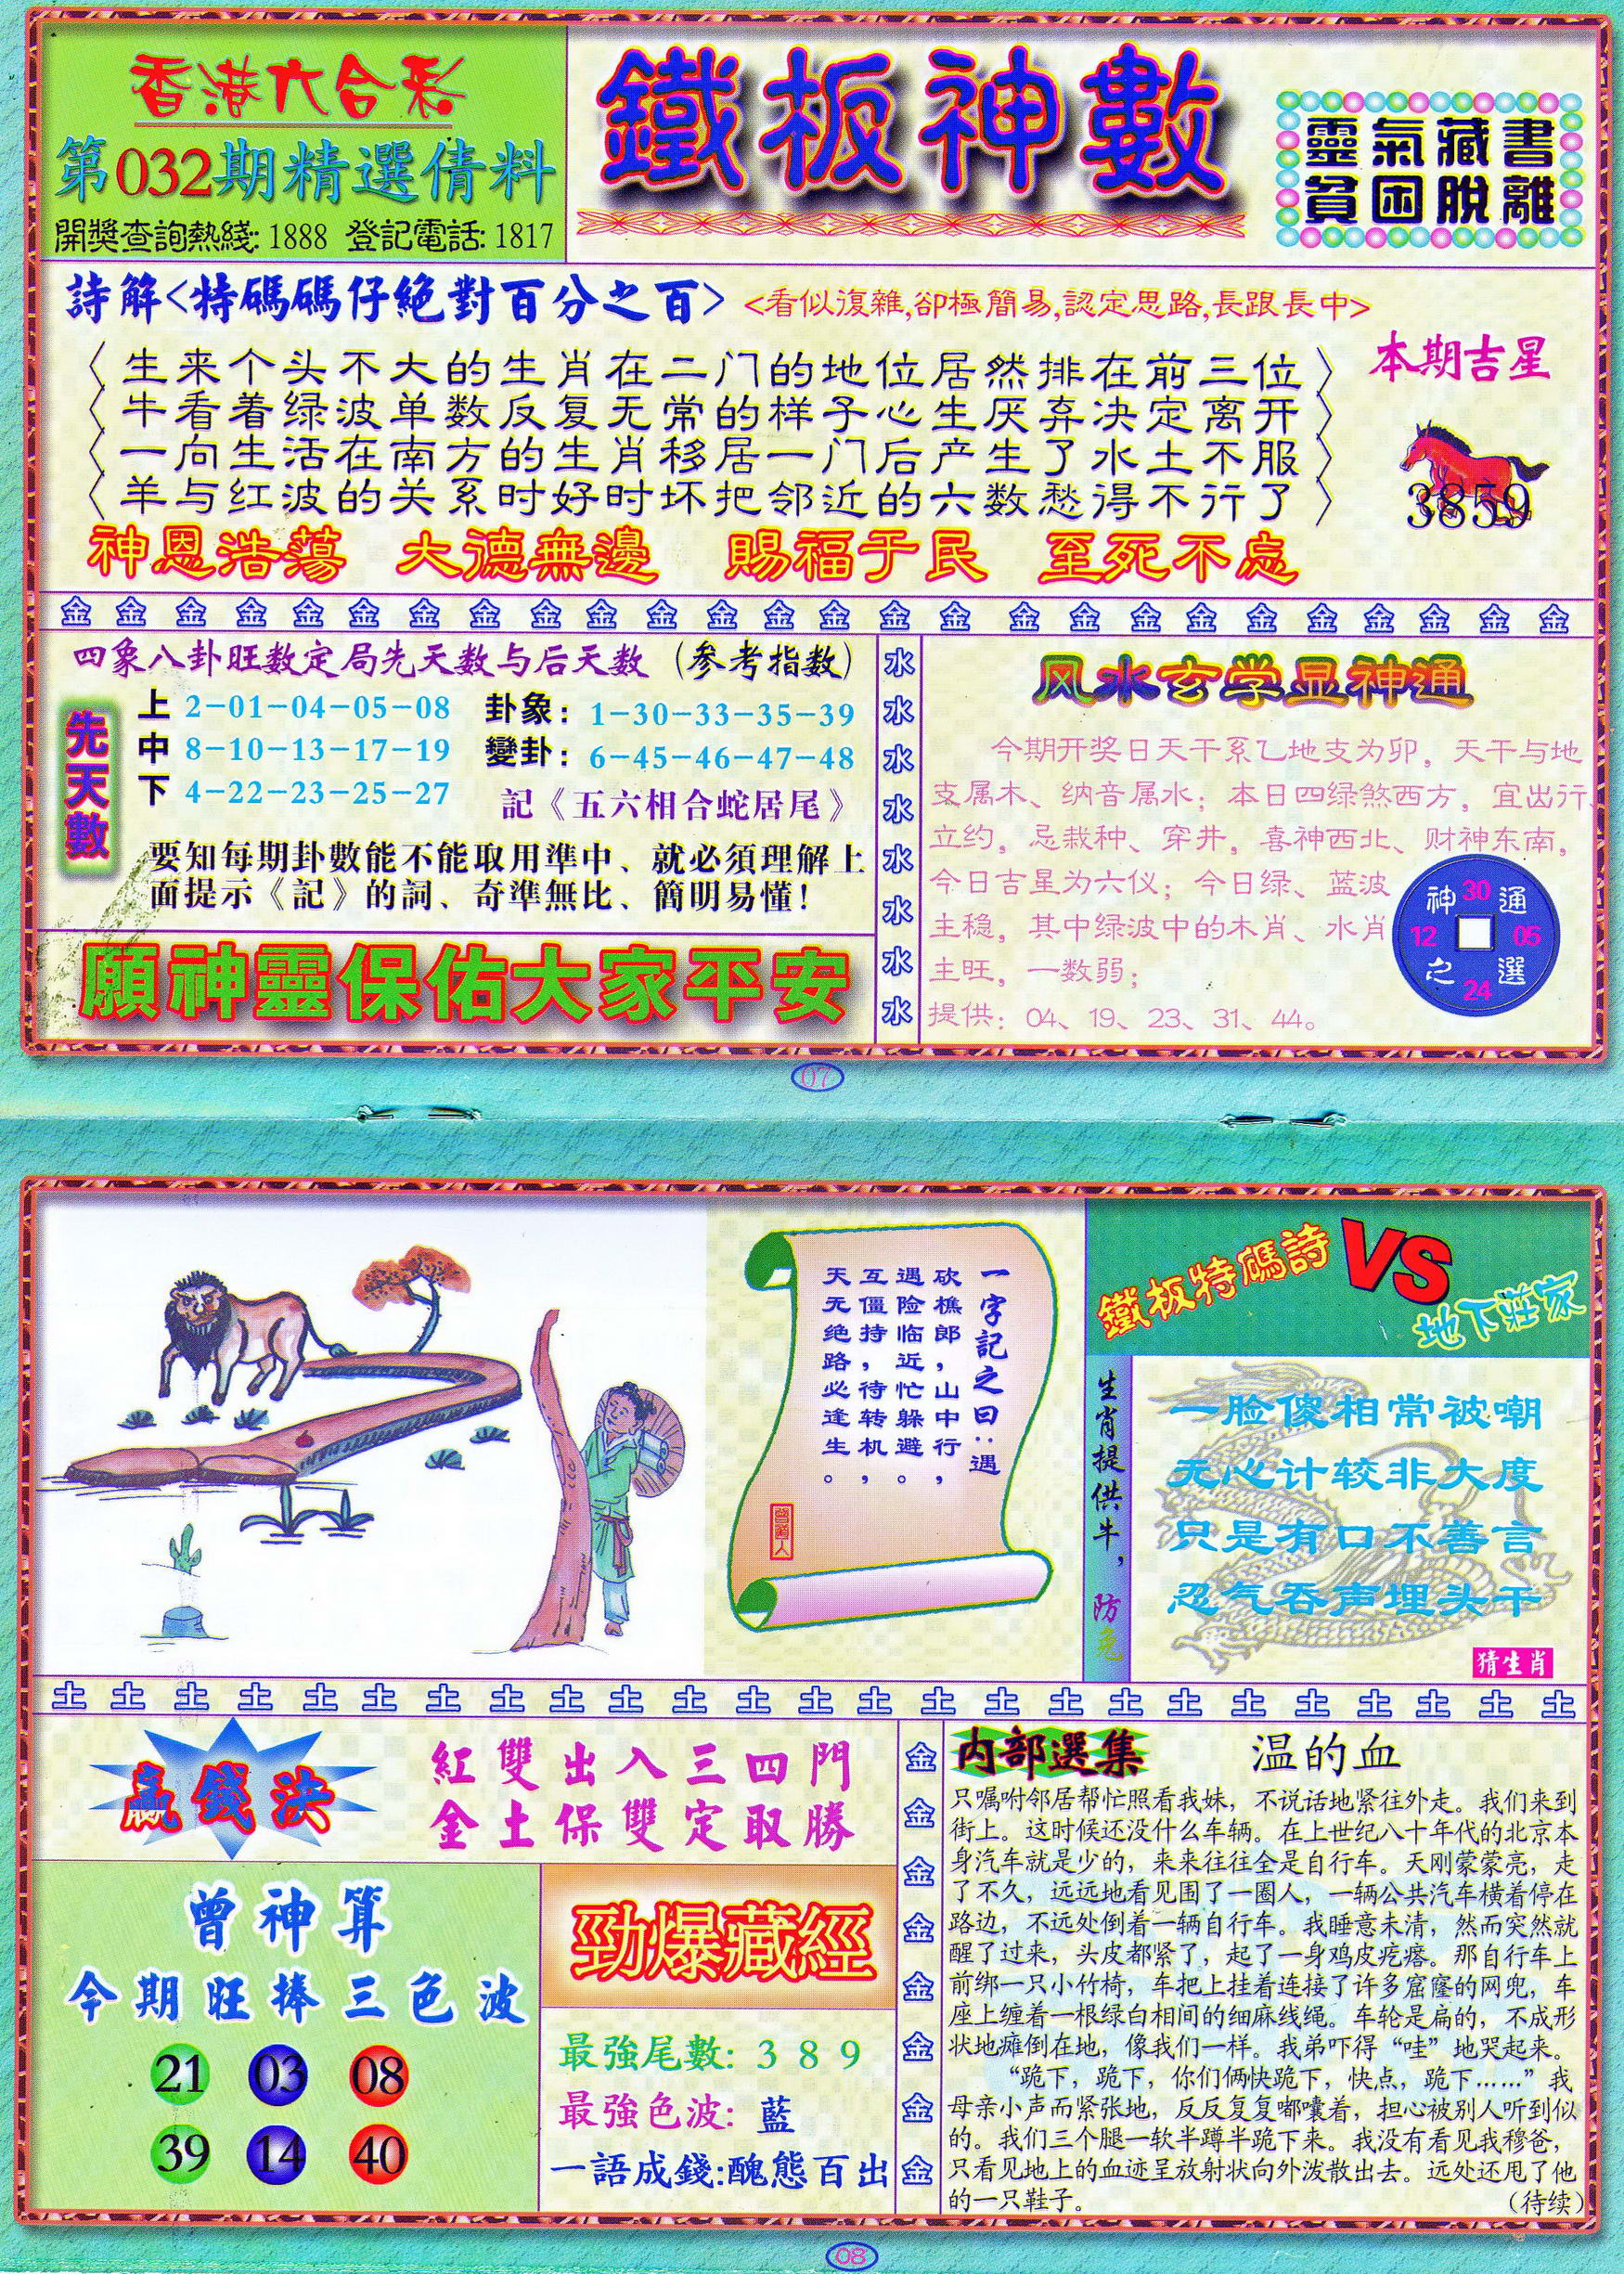 香港六合彩
第032期精選倩料
開獎查詢熱綫: 1888 登記電話: 1817
鐵板神數
靈氣藏書
貧困脫離
詩解<特碼碼仔絕對百分之百> <看似復雜,卻極簡易,認定思路,長跟長中>
本期吉星
〈生来个头不大的生肖在二门的地位居然排在前三位〉
〈牛看着绿波单数反复无常的样子心生厌弃决定离开〉
〈一向生活在南方的生肖移居一门后产生了水土不服〉
〈羊与红波的关系时好时坏把邻近的六数愁得不行了〉
3859
神恩浩蕩 大德無邊 賜福于民 至死不忘
金金金金金金金金金金金金金金金金金金金金金金金金金金
四象八卦旺数定局先天数与后天数（参考指数）
先天數
上 2-01-04-05-08 卦象：1-30-33-35-39
中 8-10-13-17-19 變卦：6-45-46-47-48
下 4-22-23-25-27 記《五六相合蛇居尾》
要知每期卦數能不能取用準中、就必須理解上
面提示《記》的詞、奇準無比、簡明易懂！
願神靈保佑大家平安
水水水水水水水水
风水玄学显神通
今期开奖日天干系乙地支为卯，天干与地
支属木、纳音属水；本日四绿煞西方，宜出行、
立约，忌栽种、穿井，喜神西北、财神东南，
今日吉星为六仪；今日绿、蓝波
主稳，其中绿波中的木肖、水肖
主旺，一数弱；
提供：04、19、23、31、44。
神 30 通
12 05
之 24 選
07
一字記之曰：遇
砍樵郎，山中行，
遇险临近，忙躲避。
互僵持，待转机，
天无绝路必逢生。
曾道人
鐵板特碼詩
VS
地下莊家
生肖提供牛，防兔
一脸傻相常被嘲
无心计较非大度
只是有口不善言
忍气吞声埋头干
猜生肖
土土土土土土土土土土土土土土土土土土土土土土土土土
贏錢決
紅雙出入三四門
金土保雙定取勝
曾神算
今期旺捧三色波
21 03 08
39 14 40
勁爆藏經
最強尾數: 3 8 9
最強色波: 藍
一語成錢:醜態百出
金金金金金金金金
内部選集 温的血
只嘱咐邻居帮忙照看我妹，不说话地紧往外走。我们来到
街上。这时候还没什么车辆。在上世纪八十年代的北京本
身汽车就是少的，来来往往全是自行车。天刚蒙蒙亮，走
了不久，远远地看见围了一圈人，一辆公共汽车横着停在
路边，不远处倒着一辆自行车。我睡意未清，然而突然就
醒了过来，头皮都紧了，起了一身鸡皮疙瘩。那自行车上
前绑一只小竹椅，车把上挂着连接了许多窟窿的网兜，车
座上缠着一根绿白相间的细麻线绳。车轮是扁的，不成形
状地瘫倒在地，像我们一样。我弟吓得“哇”地哭起来。
“跪下，跪下，你们俩快跪下，快点，跪下……”我
母亲小声而紧张地，反反复复嘟囔着，担心被别人听到似
的。我们三个腿一软半蹲半跪下来。我没有看见我穆爸，
只看见地上的血迹呈放射状向外泼散出去。远处还甩了他
的一只鞋子。 （待续）
08